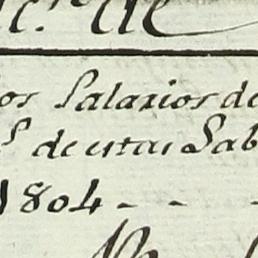 de
os Salarios de
s de estas Lab
1804 - - -